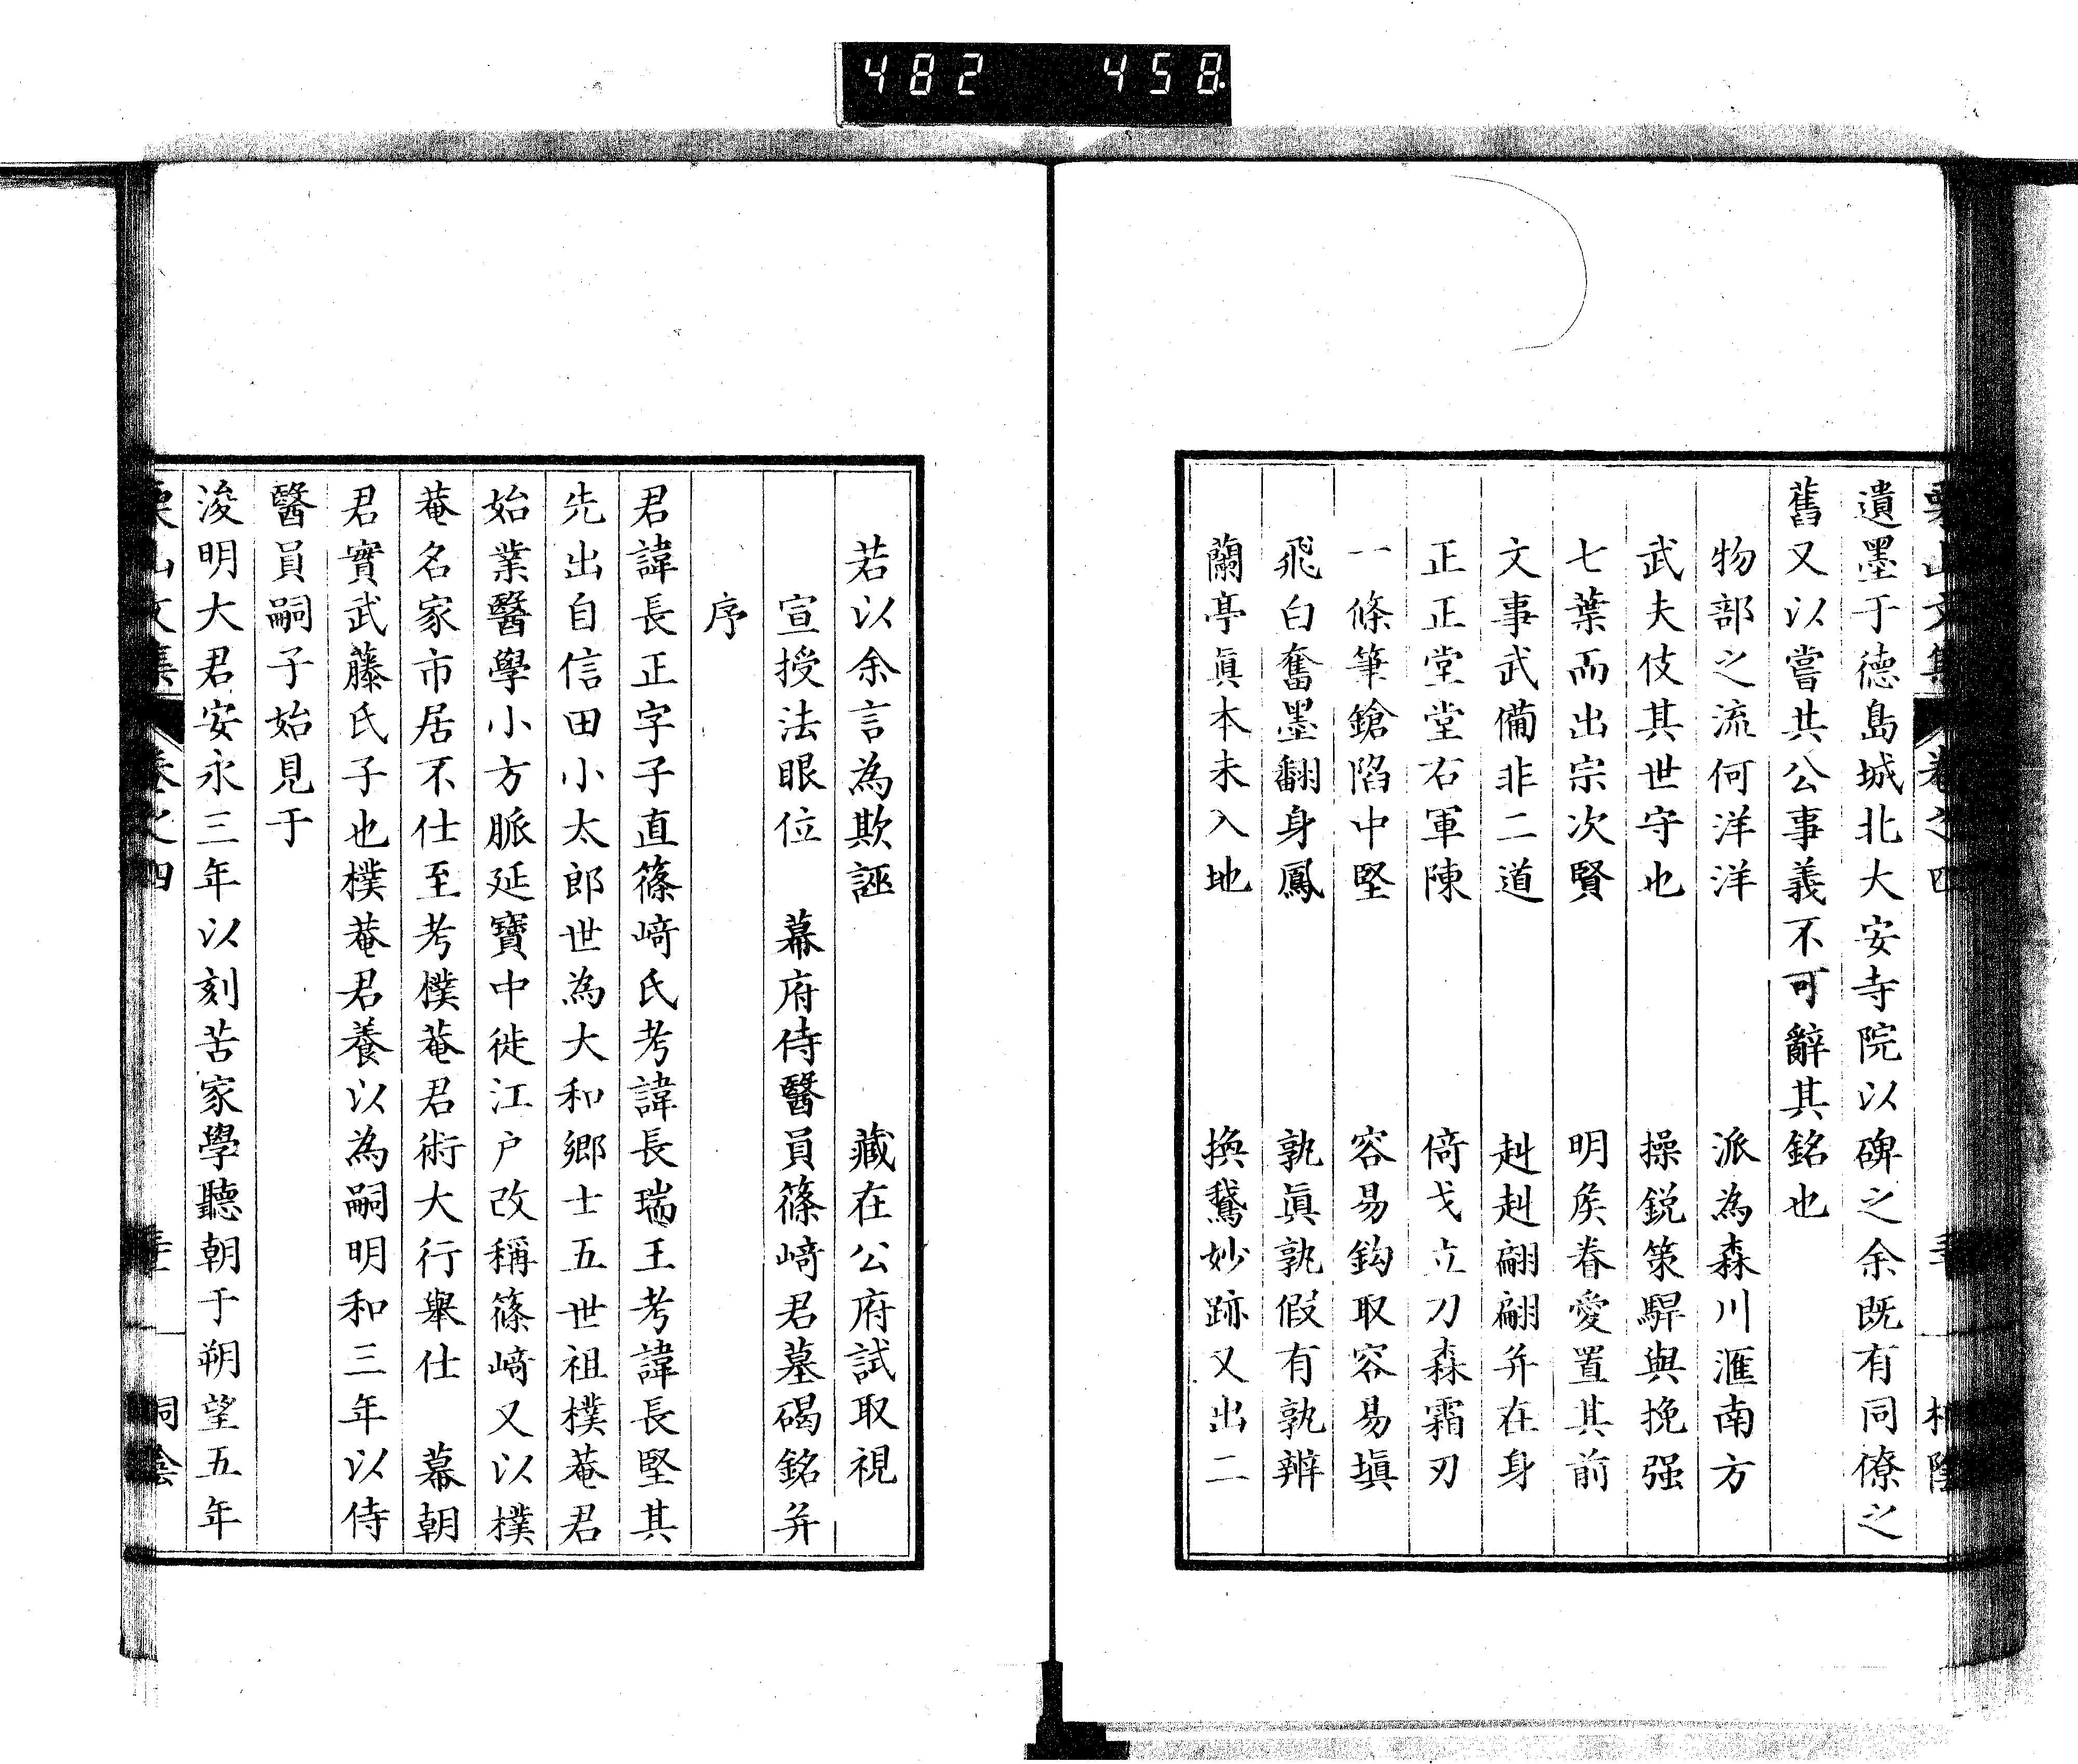 482 458.
遺墨于德島城北大安寺院以碑之余既有同僚之
舊又以嘗共公事義不可辭其銘也
物部之流何洋洋 派為森川滙南方
武夫伎其世守也 操銳策騂與挽强
七葉而出宗次賢 明矦眷愛置其前
文事武備非二道 赳赳翩翩并在身
正正堂堂石軍陳 倚戈立刀森霜刃
一條筆鎗陷中堅 容易鈎取容易塡
飛白奮墨翻身鳳 孰眞孰假有孰辨
蘭亭眞本未入地 換鵞妙跡又出二
若以余言為欺誣 藏在公府試取視
宣授法眼位 幕府侍醫員篠﨑君墓碣銘并
序
君諱長正字子直篠﨑氏考諱長瑞王考諱長堅其
先出自信田小太郎世為大和鄉士五世祖樸菴君
始業醫學小方脈延寶中徙江户改稱篠﨑又以樸
菴名家市居不仕至考樸菴君術大行舉仕 幕朝
君實武藤氏子也樸菴君養以為嗣明和三年以侍
醫員嗣子始見于
浚明大君安永三年以刻苦家學聽朝于朔望五年